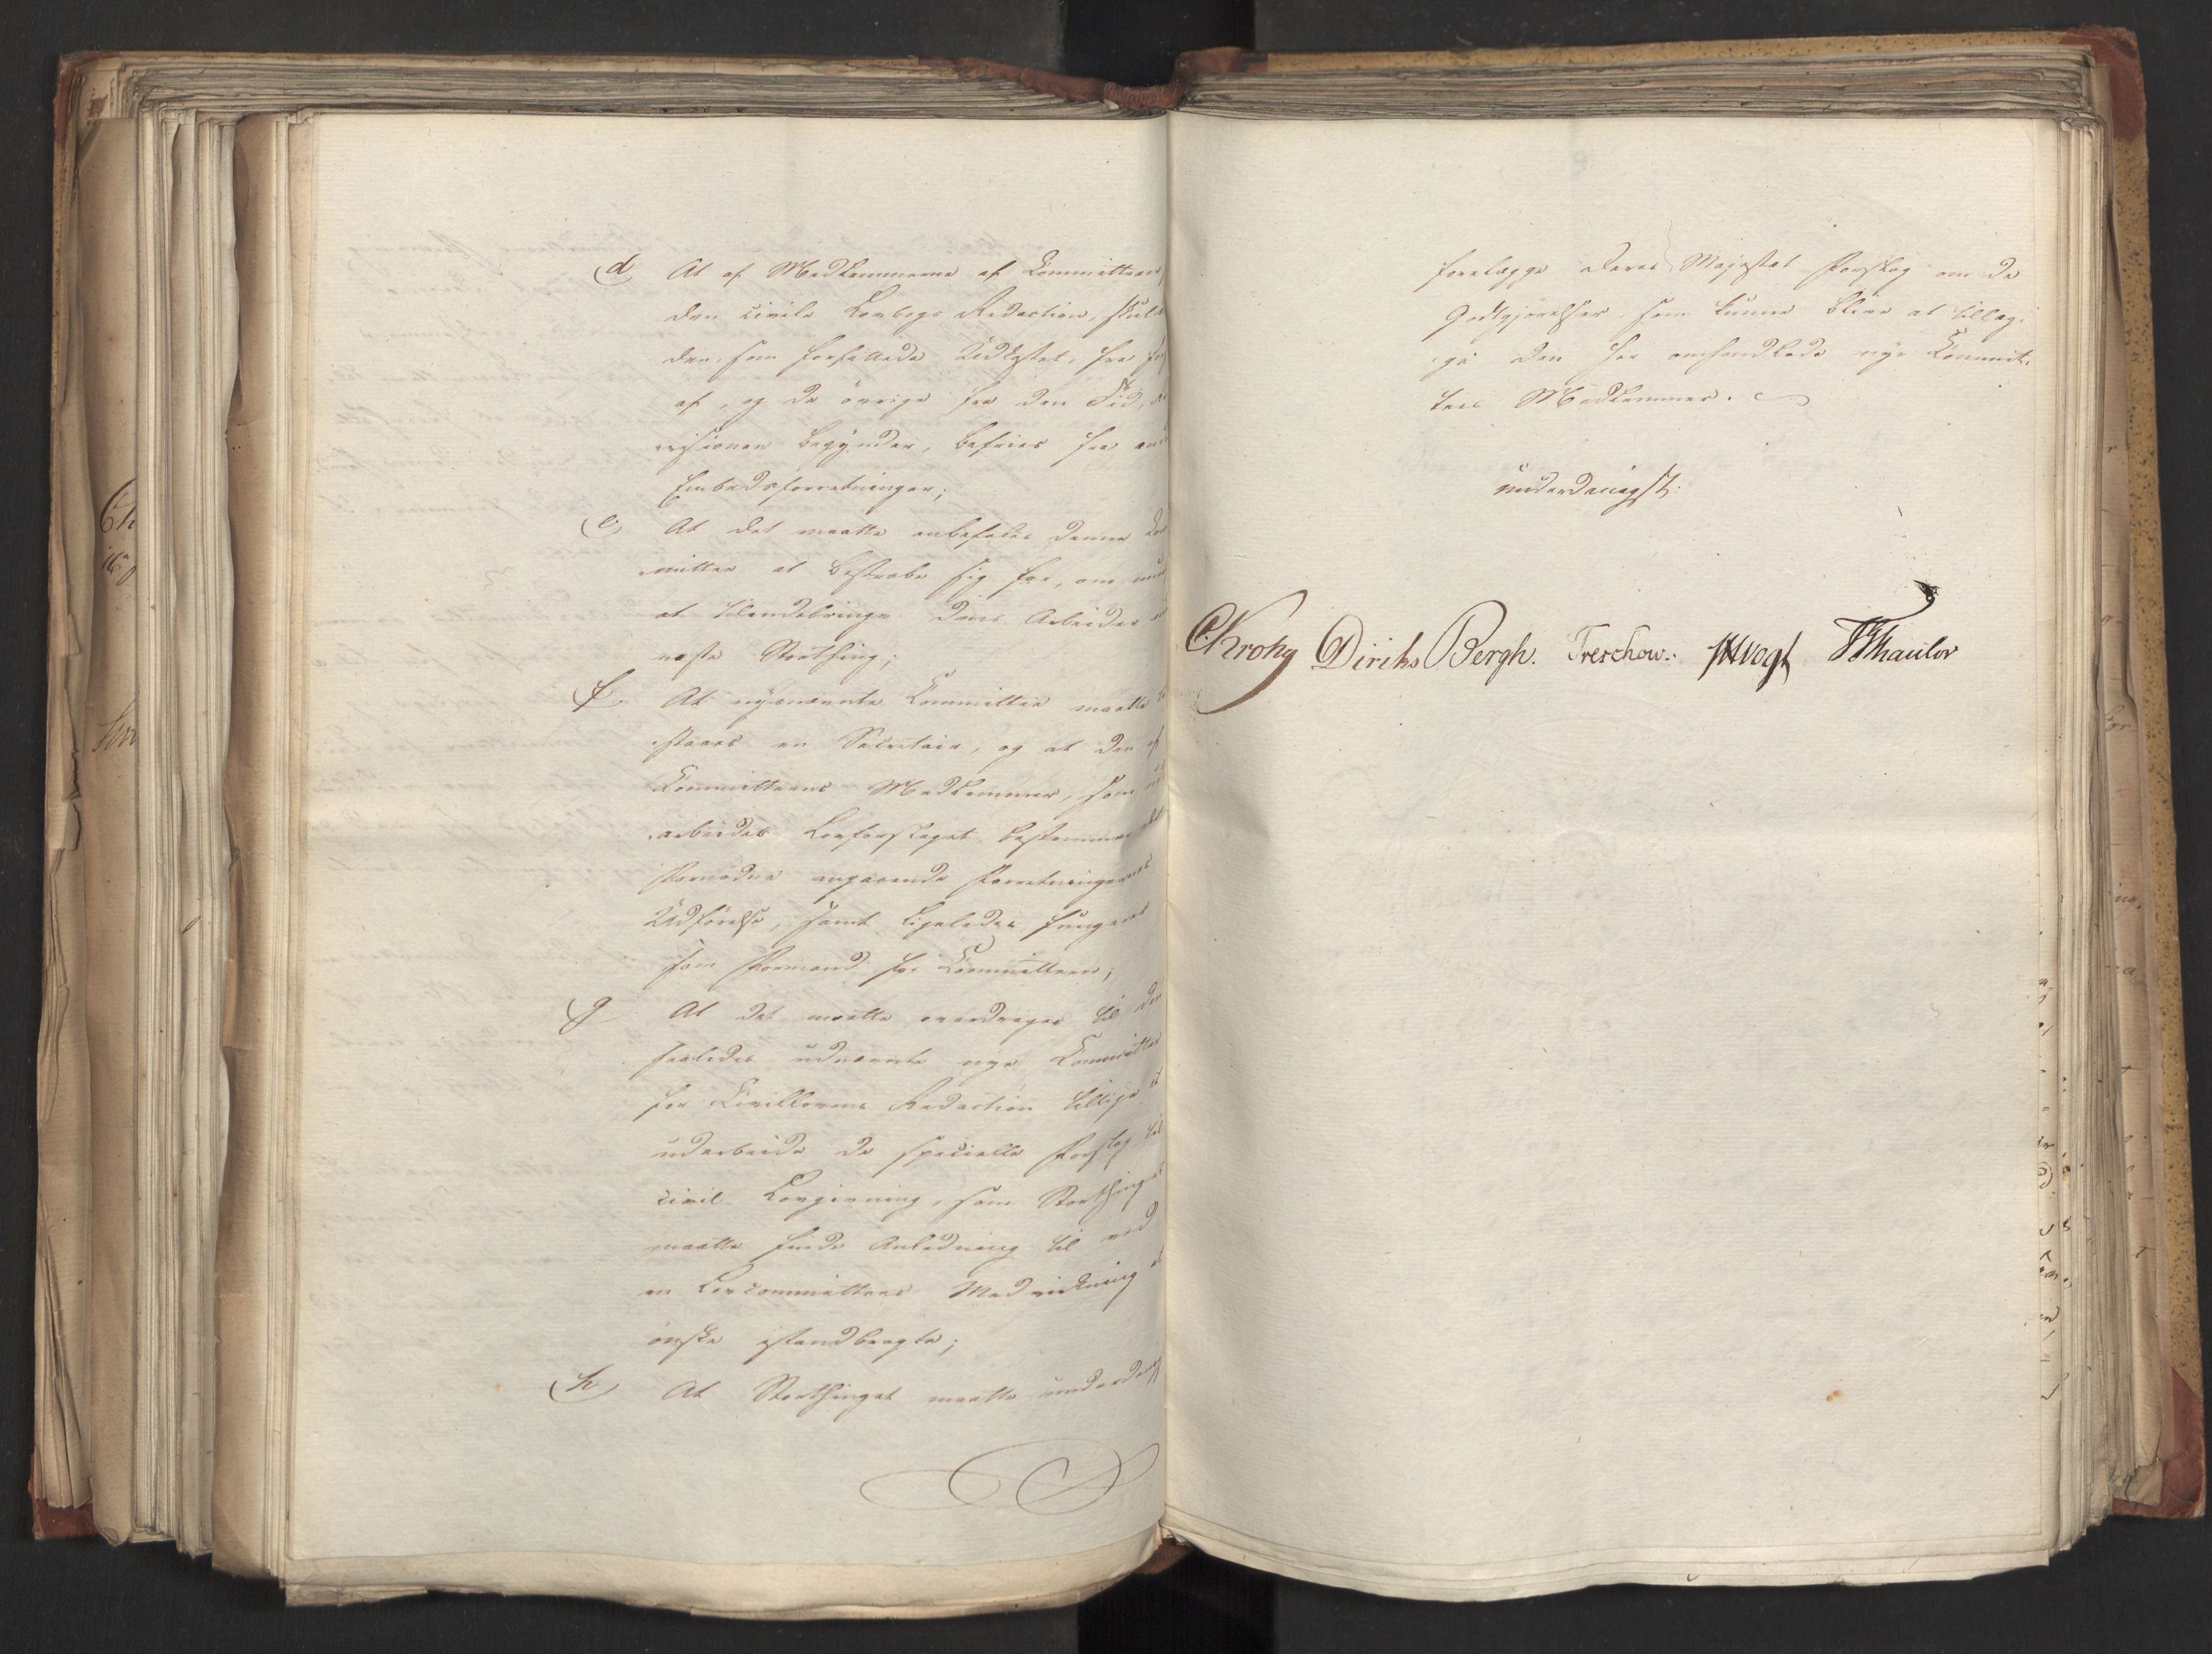 d At af Medlemmerne af Committeen
den civile Lovbogs Redaction, skul
den, som forfattede Udkastet, fra
af, og de övrige fra den Tid,
visionen begynder, befries fra
Embedsforretninger;
e) At det maatte anbefales denne Com
mittee at bestræbe sig for, om
at tilendebringe dens Arbeider
næste Storthing;
f. At nysnævnte Committee maatte
staaes en Secretair, og at den af
Committeens Medlemmer, som
arbeider Lovforslaget, bestemmer
Fornödne angaaende Forretningernes
Udförelse, samt ligeledes fungerer
som Formand for Committeen;
g At det maatte overdrages til den
saaledes udnævnte nye Committee
for Civillovens Redaction tillige at
udarbeide de specielle Forslag til
civil Lovgivning, som Storthinget
maatte finde Anledning til ved
en Lovcommittees Medvirkning at
önske istandbragte;
h) At Storthinget maatte underdanigst
forelægge Deres Majestæt Forslag om de
Godtgjörelser som kunne blive at tillæg-
ge den her omhandlede nye Commit-
tees Medlemmer.
underdanigst.
CKrohg Diriks Bergh. Treschow. Vogt Thaulov